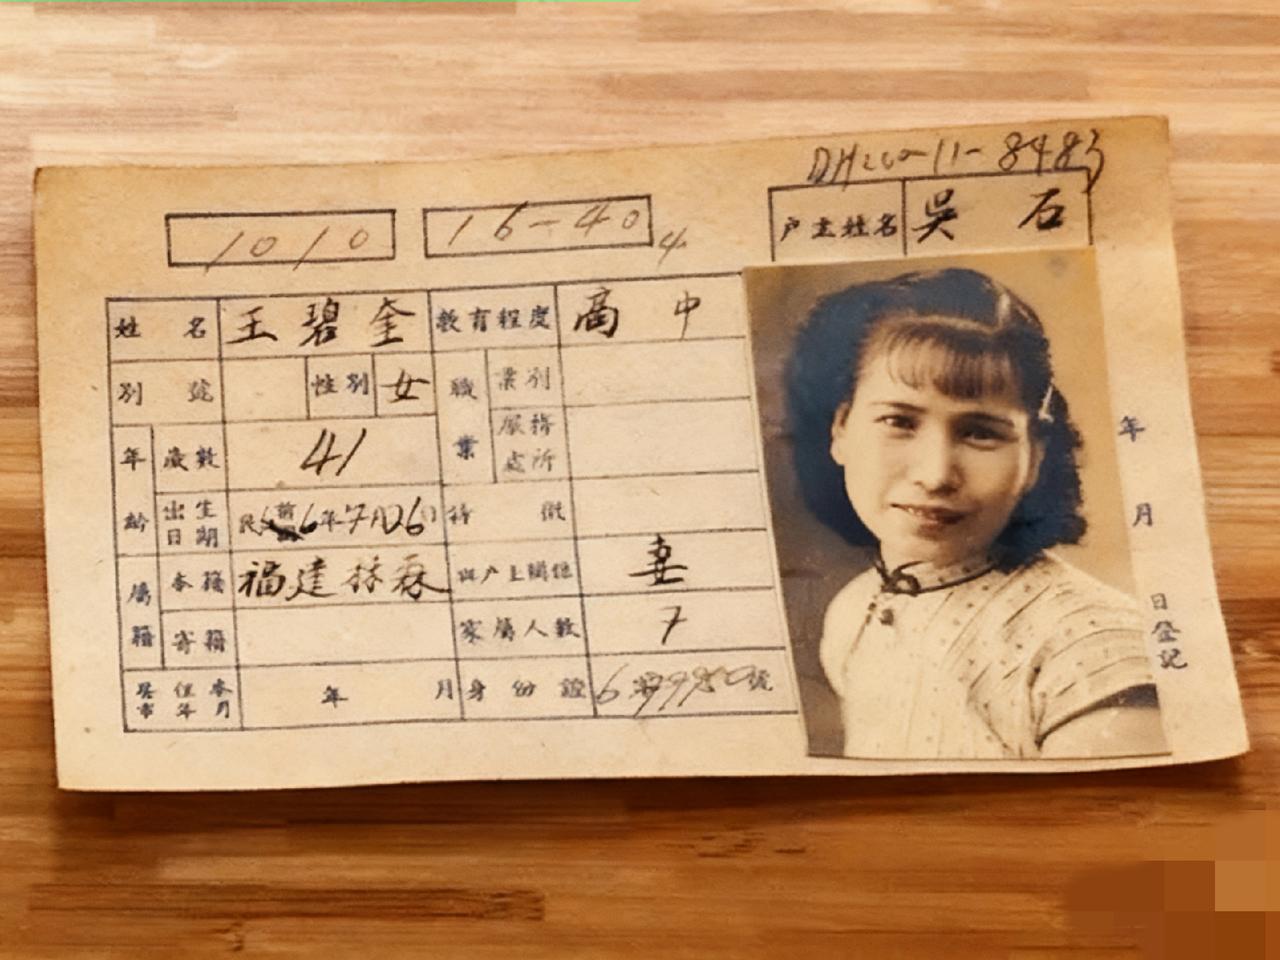 DH
-11-8483
1010
16-40
4
户主姓名 吳石
姓名 王碧奎 教育程度 高中
別號 性別 女 職業 業別
年齡 歲數 41 服務處所
出生日期 民前6年7月26日 特徵
屬籍 本籍 福建林森 與户主關係 妻
寄籍 家屬人數 7
年 月 身份證 號
年 月 日登記